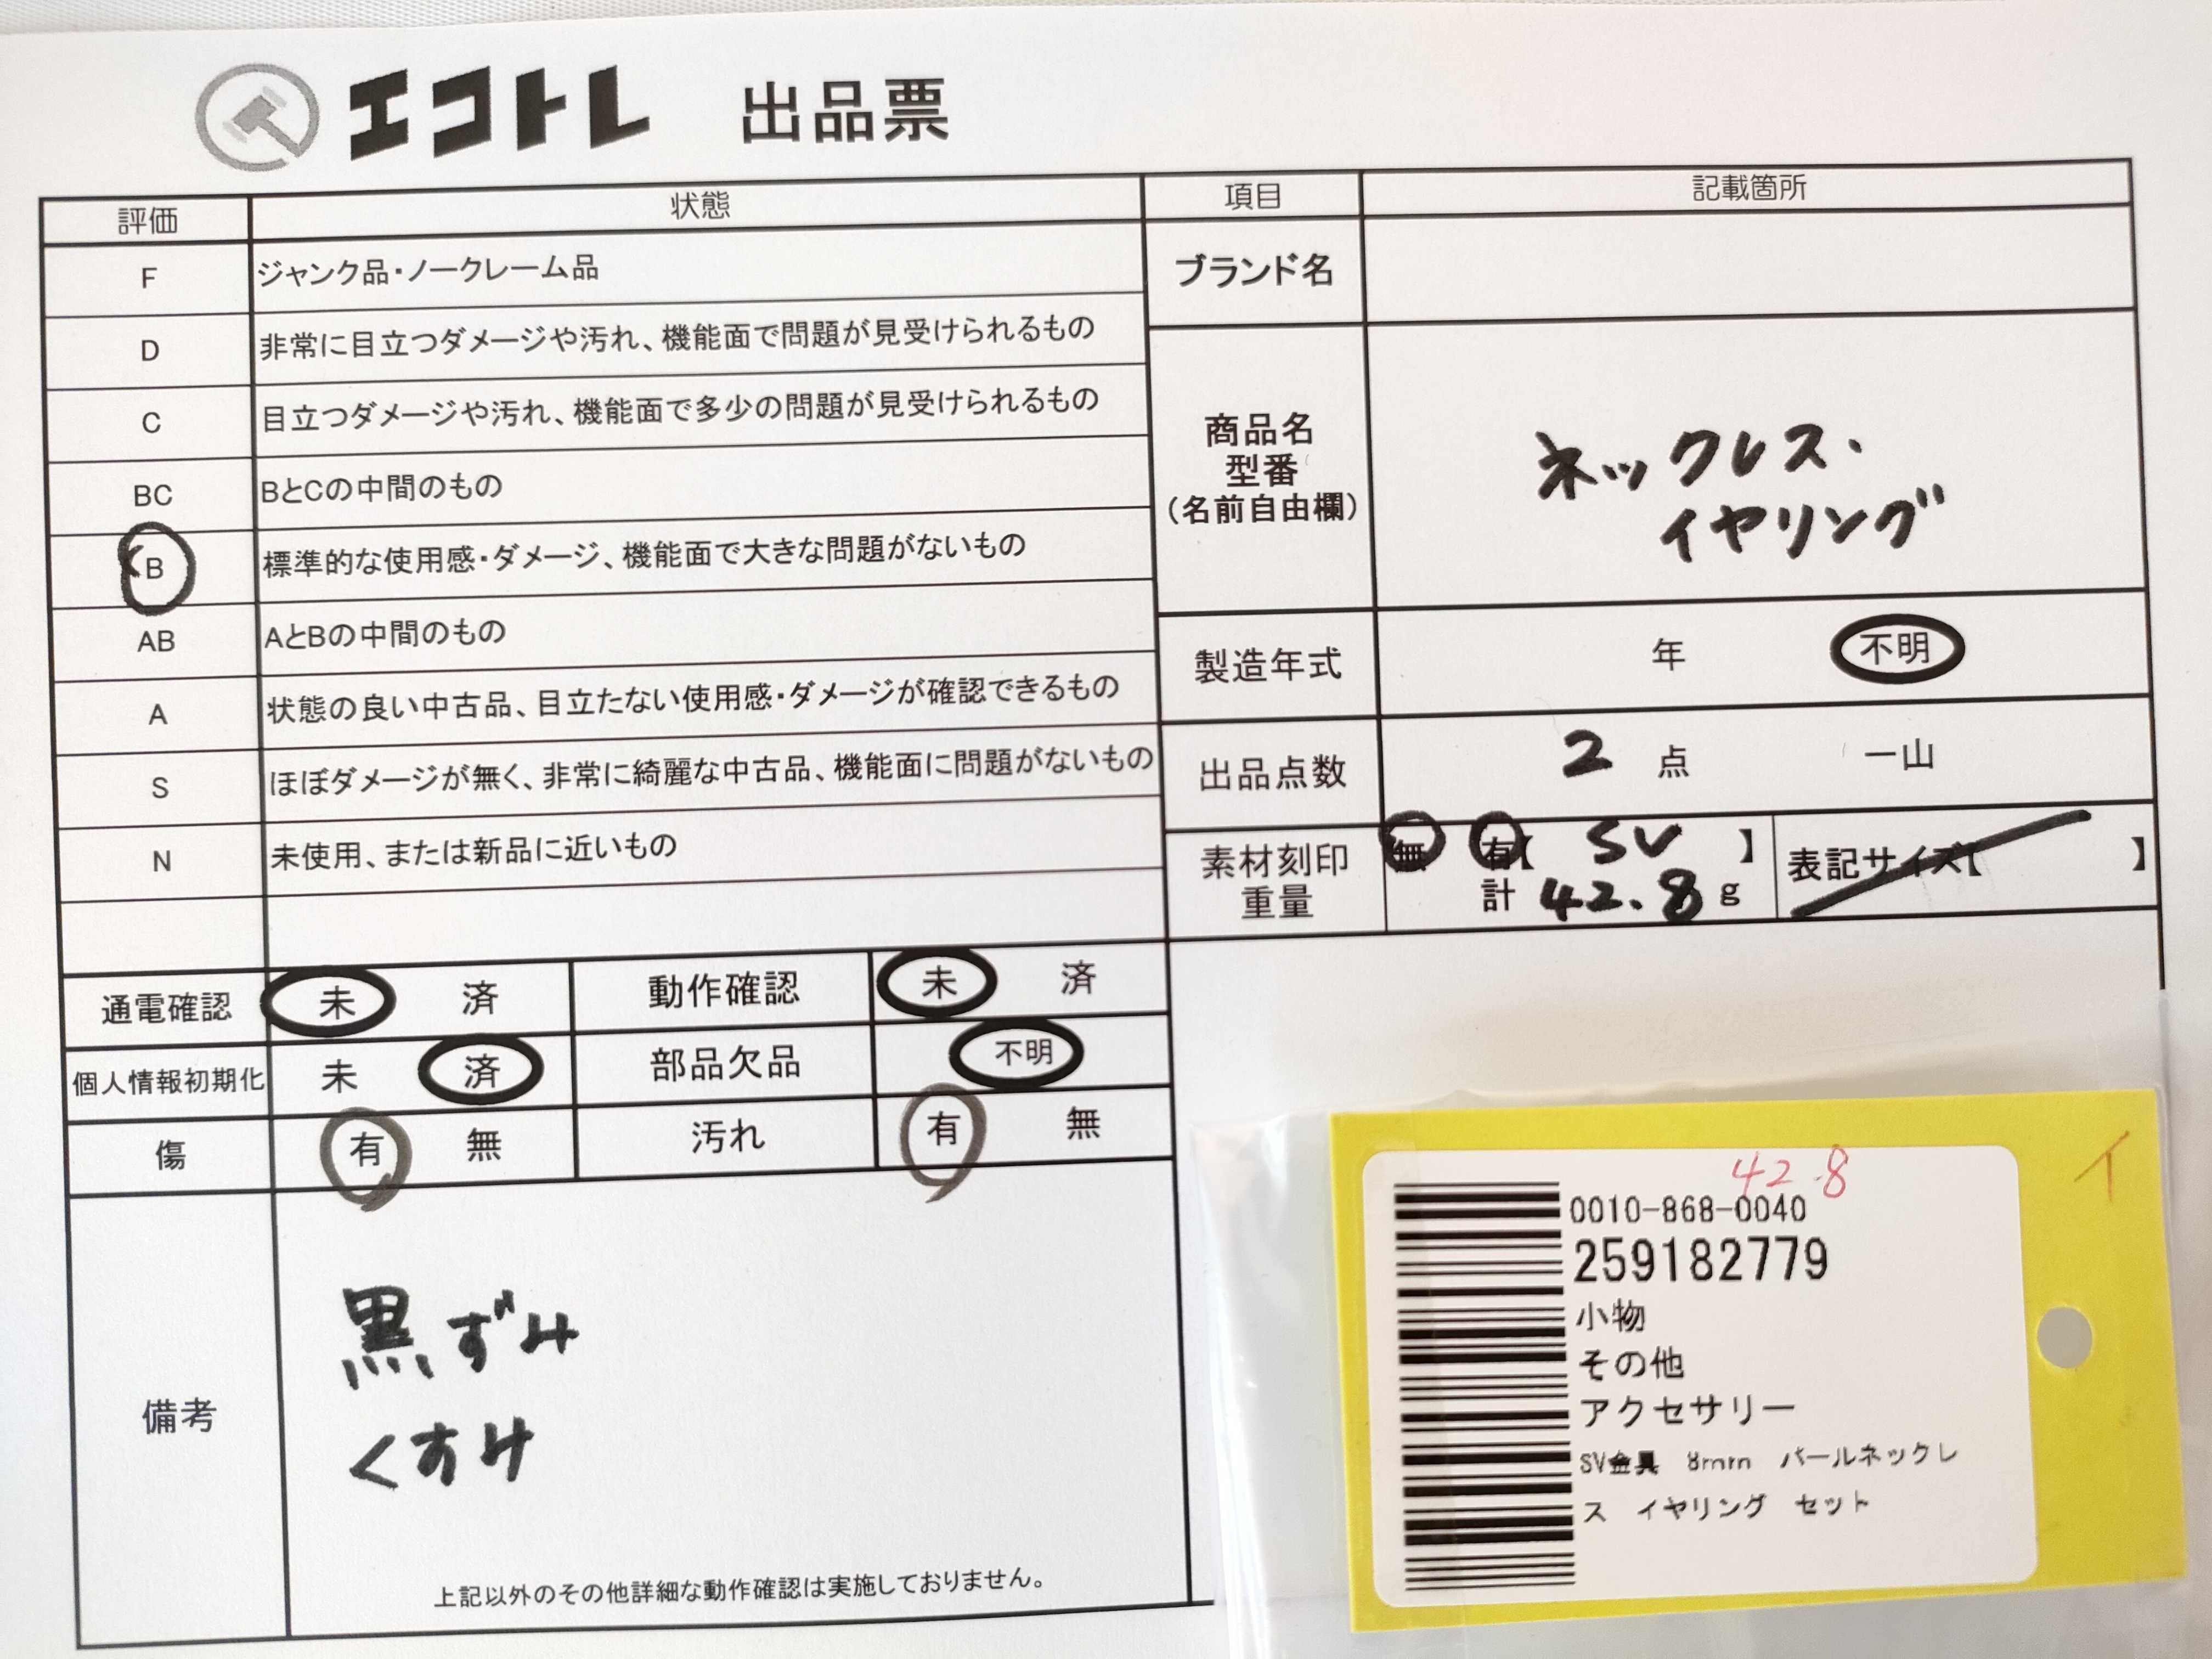 エコトレ 出品票
評価 状態
F ジャンク品・ノークレーム品
D 非常に目立つダメージや汚れ、機能面で問題が見受けられるもの
C 目立つダメージや汚れ、機能面で多少の問題が見受けられるもの
BC BとCの中間のもの
B 標準的な使用感・ダメージ、機能面で大きな問題がないもの
AB AとBの中間のもの
A 状態の良い中古品、目立たない使用感・ダメージが確認できるもの
S ほぼダメージが無く、非常に綺麗な中古品、機能面に問題がないもの
N 未使用、または新品に近いもの
通電確認 未 済 動作確認 未 済
個人情報初期化 未 済 部品欠品 不明
傷 有 無 汚れ 有 無
備考
黒ずみ
くすけ
上記以外のその他詳細な動作確認は実施しておりません。
項目 記載箇所
ブランド名
商品名
型番
(名前自由欄)
ネックレス、
イヤリング
製造年式 年 不明
出品点数 2 点 一山
素材刻印 無 有【 SV 】 表記サイズ【 】
重量 計 42.8 g
42.8
イ
0010-868-0040
259182779
小物
その他
アクセサリー
SV金具 8mm パールネックレ
ス イヤリング セット